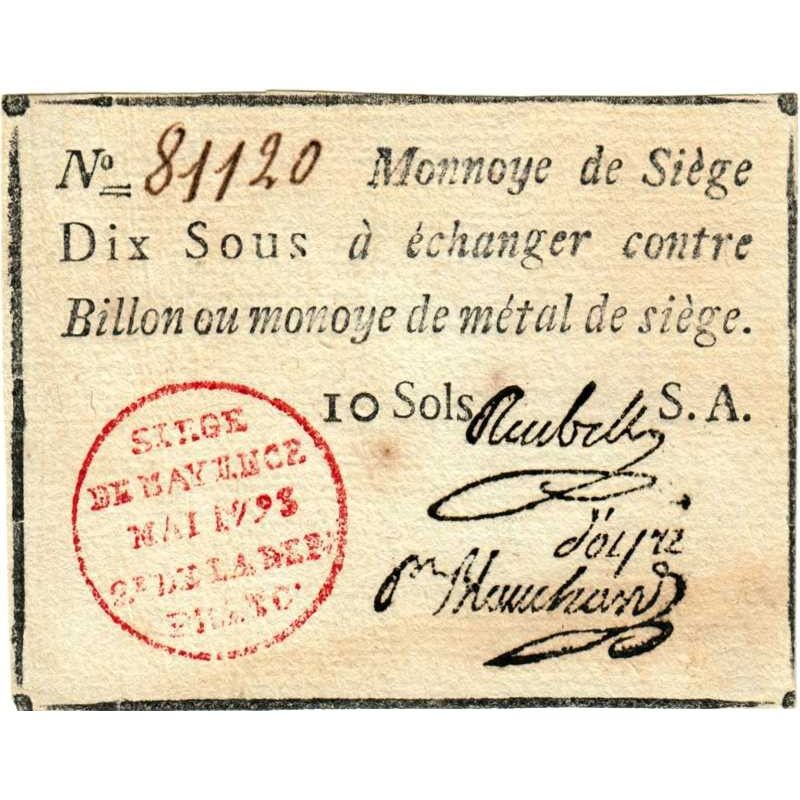 Nº 81120 Monnoye de Siège
Dix Sous à échanger contre
Billon ou monoye de métal de siège.
10 Sols S. A.
Reubell
d'oyré
SIEGE
DE MAYENCE
MAI 1793
2ᵉ DE LA REP.
FRANÇ.